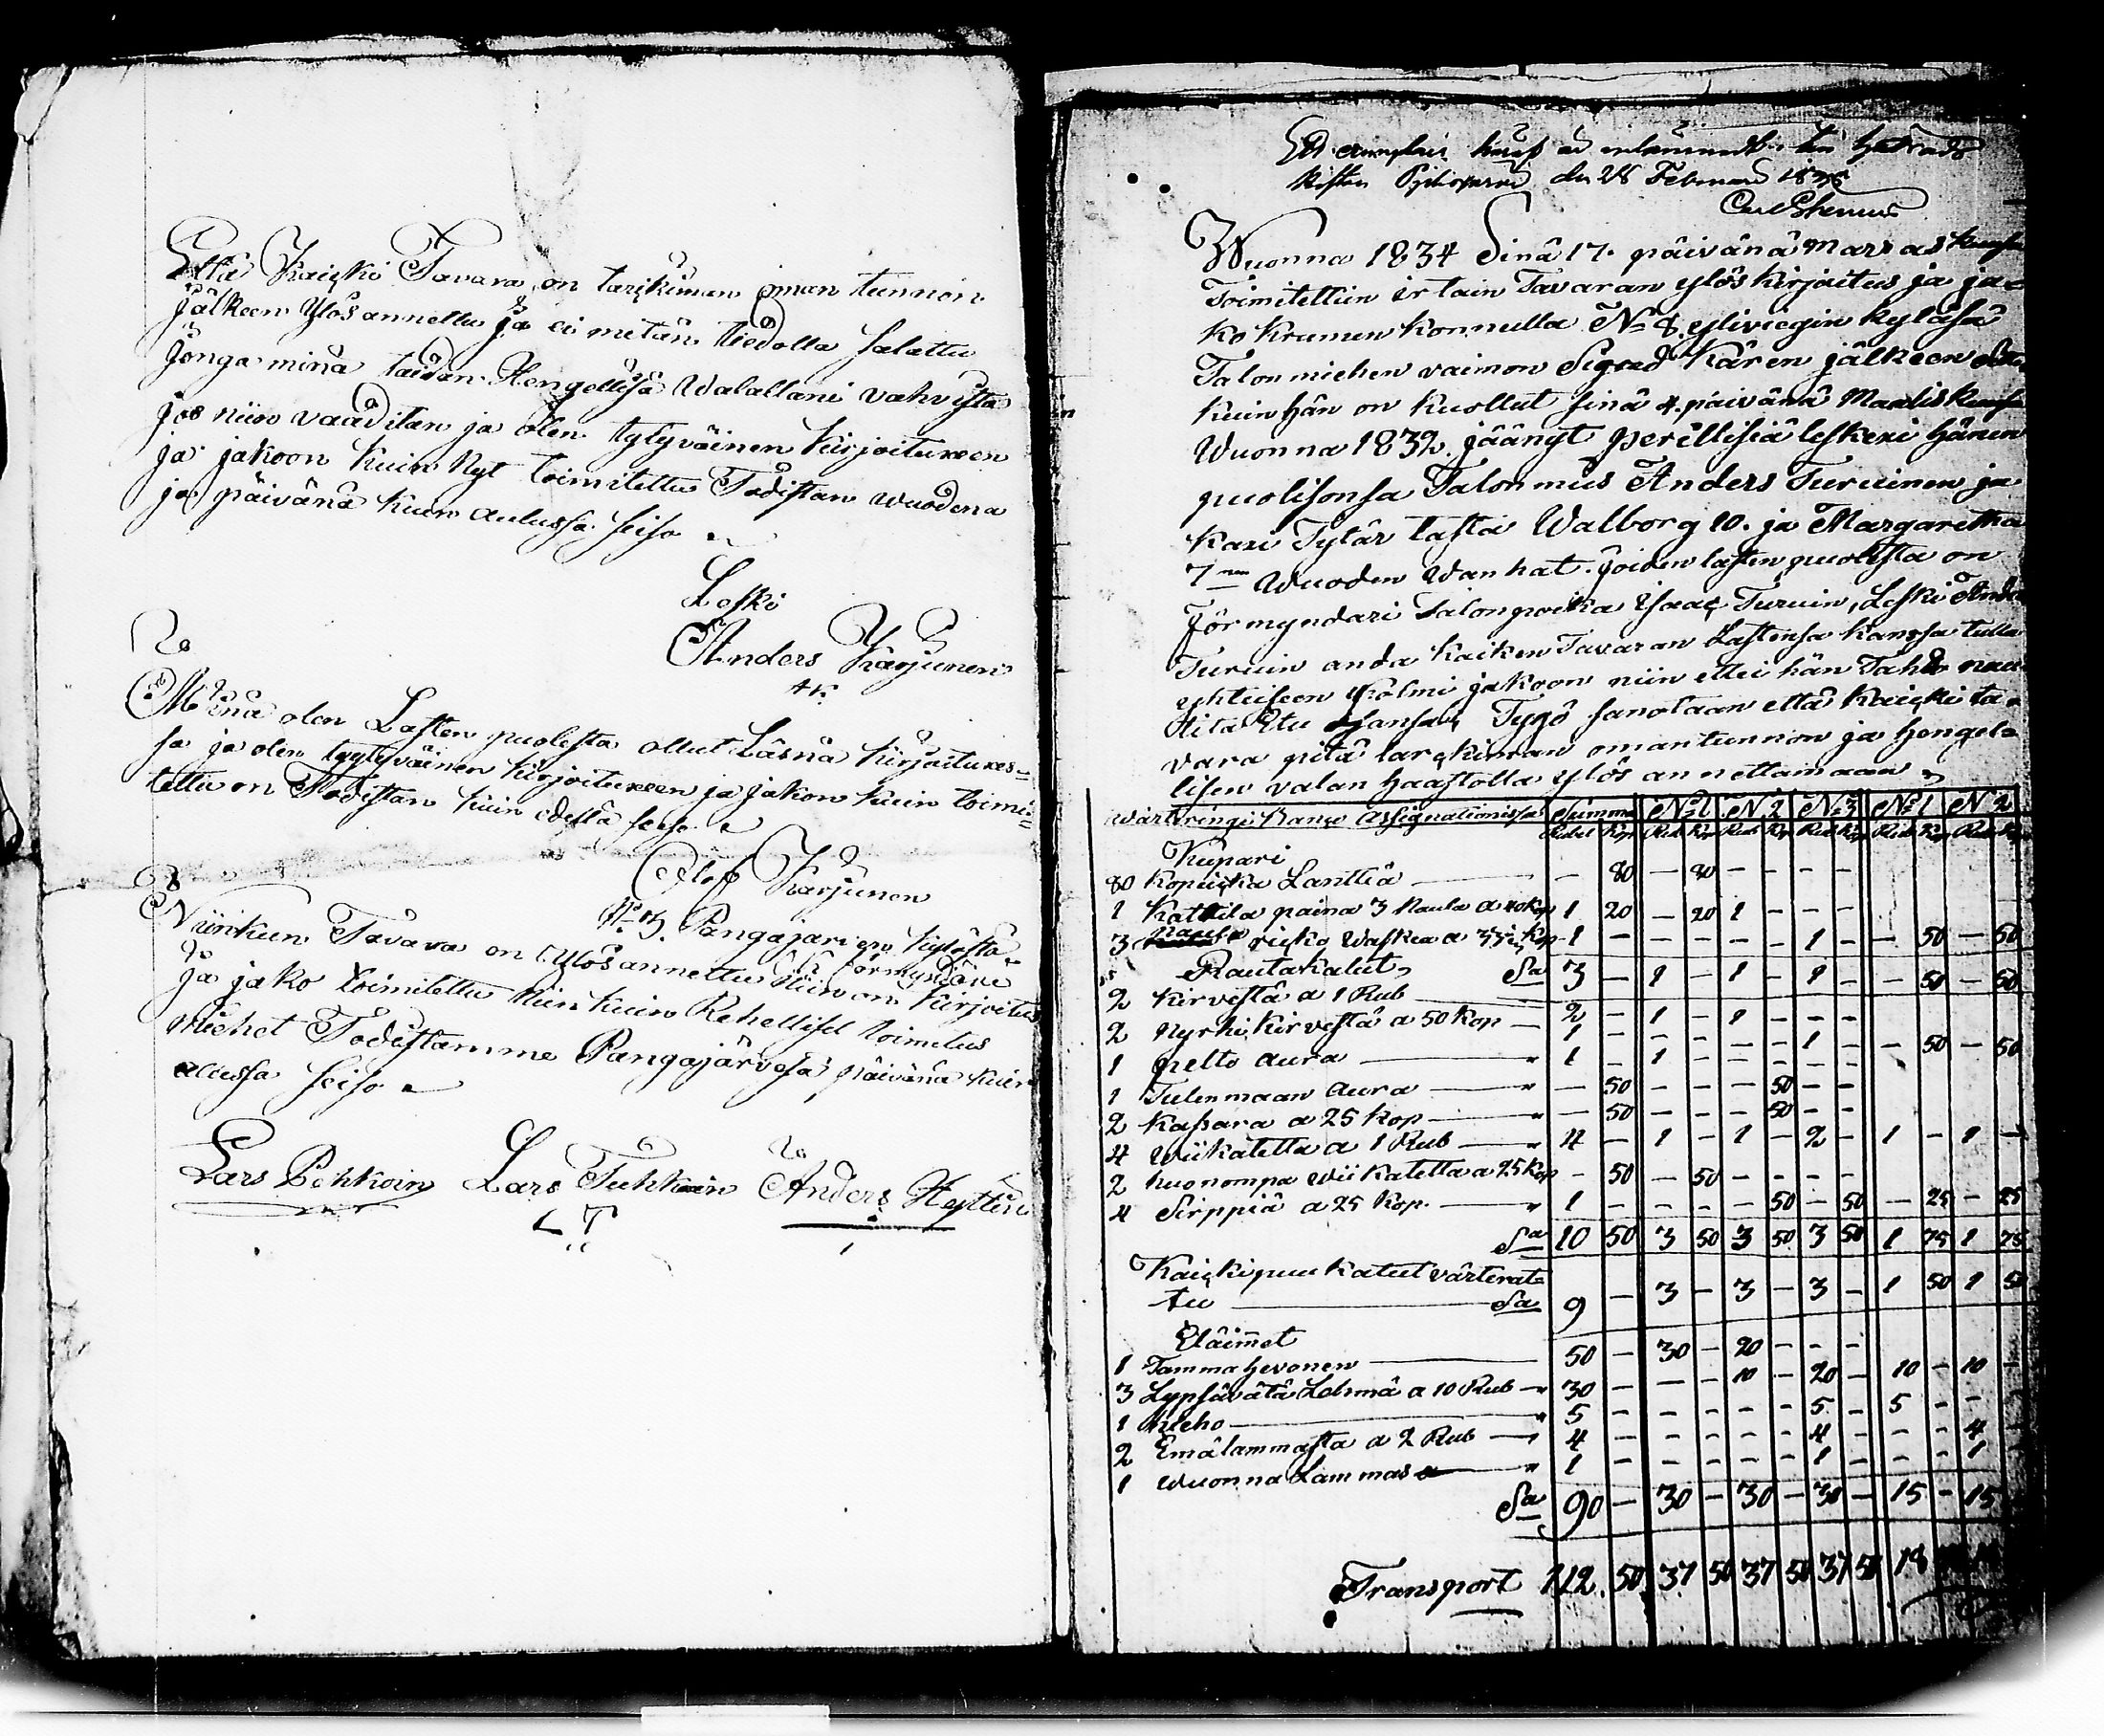 Että Kaiçki Tavara on tarikiman oman tunnon
jälkeen Ylös annettu ja ei mitän tiedolla salattu
jonga minä taidan Hengellisä Walallani vahvista
jos niin vaaditan ja olen tytyväinen kirjoituxeen
ja jakoon kuin Nyt toimitettu Todistan wuodena
ja päivänä kuin aulussa seiso
Leski
Anders Karjunen
AK
Minä olen Lasten puolesta ollut Läsnä kirjoituxes=
sa ja olen tyytyväinen kirjoituxeen ja jakon kuin toimi=
tettu on Todistan kuin edellä seiso
Olof Karjunen
Pangajarven kylästä
förmyndäri
Niinkuin Tavara on Ylös annettu Niin on kirjoitus
ja jako toimitettu niin kuin Rehelliset toimitus
miehet Todistamme Pangajärvesä päivänä kuin
alussa seiso
Lars Pehkoin Lars Tuhkain Anders Heyttin
L T
den 28 Februari
Wuonna 1834 Sinä 17. päivänä
Toimitettiin ertain Tavaran ylös kirjoitus ja ja=
ko Krunun konnulla No 8 yliviegin kyläsä
Talon miehen vaimon Sigred Kären jälkeen
kuin hän on kuollut sinä 4. päivänä Maaliskuusa
Wuonna 1832. jäänyt perillisiä leskexi hänen
puolisonsa Talon mies Anders Turuinen ja
kaxi Tytär lasta Walborg 10. ja Margaretha
7 Wuoden wanhat. joiden lasten puolesta on
förmyndari Talonpoika Isaaç Turuin, Leski
Turuin anda kaiken Tavaran Lastensa kanssa tulla
yhteiseen kolmi jakoon niin ettei hän Tahdo
Etu Tygö sanotaan että kaiçki ta=
vara pitä tarçkiman omantunnon ja hengel=
lisen valan haastolla ylös annettamaan
Wärteringi Rahan Assignationissa Summa No 1 N 2 No 3 No 1 N 2
Rubel Kop Rub Kop Rub Kop Rub Kop Rub Kop Rub
Kupari
80 Kopeiçka Lanttia — 80 — 80 — — — —
1 Kattila paina 3 Naula a 40 Kop 1 20 — 20 1 — — —
3 Naula ricko Waskea a 33⅓ Kop 1 — — — — — 1 — — 50 — 50
Sa 3 — 1 — 1 — 1 — — 50 — 50
Rautakalut
2 kirvestä a 1 Rub 2 — 1 — 1 — — —
2 nyrki kirvestä a 50 Kop 1 — — — — — 1 — — 50 — 50
1 pelto aura 1 — 1 — — — — —
1 Tulenmaan aura — 50 — — — 50 — —
2 Kassara a 25 Kop — 50 — — — 50 — —
4 Wiikatetta a 1 Rub 4 — 1 — 1 — 2 — 1 — 1 —
2 huonompa wiikatetta a 25 Kop — 50 — 50 — — — —
4 Sirppiä a 25 Kop. 1 — — — — 50 — 50 — 25 — 25
Sa 10 50 3 50 3 50 3 50 1 75 1 75
Kaiçki puu kalut värterat=
tu Sa 9 — 3 — 3 — 3 — 1 50 1 50
Eläimet
1 Tamma hevonen 50 — 30 — 20 — — —
3 Lypsävätä Lehmä a 10 Rub 30 — — — 10 — 20 — 10 — 10 —
1 hieho 5 — — — — — 5 — 5 — —
2 Emälammasta a 2 Rub 4 — — — — — 4 — — — 4 —
1 Wuonna Lammas 1 — — — — — 1 — — — 1
Sa 90 — 30 — 30 — 30 — 15 — 15
Transport 112. 50 37 50 37 50 37 50 18